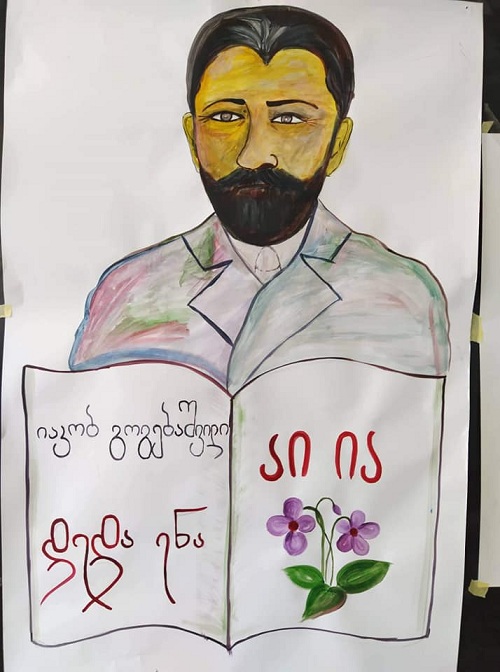 იაკობ გოგებაშვილი
დედა ენა
აი ია